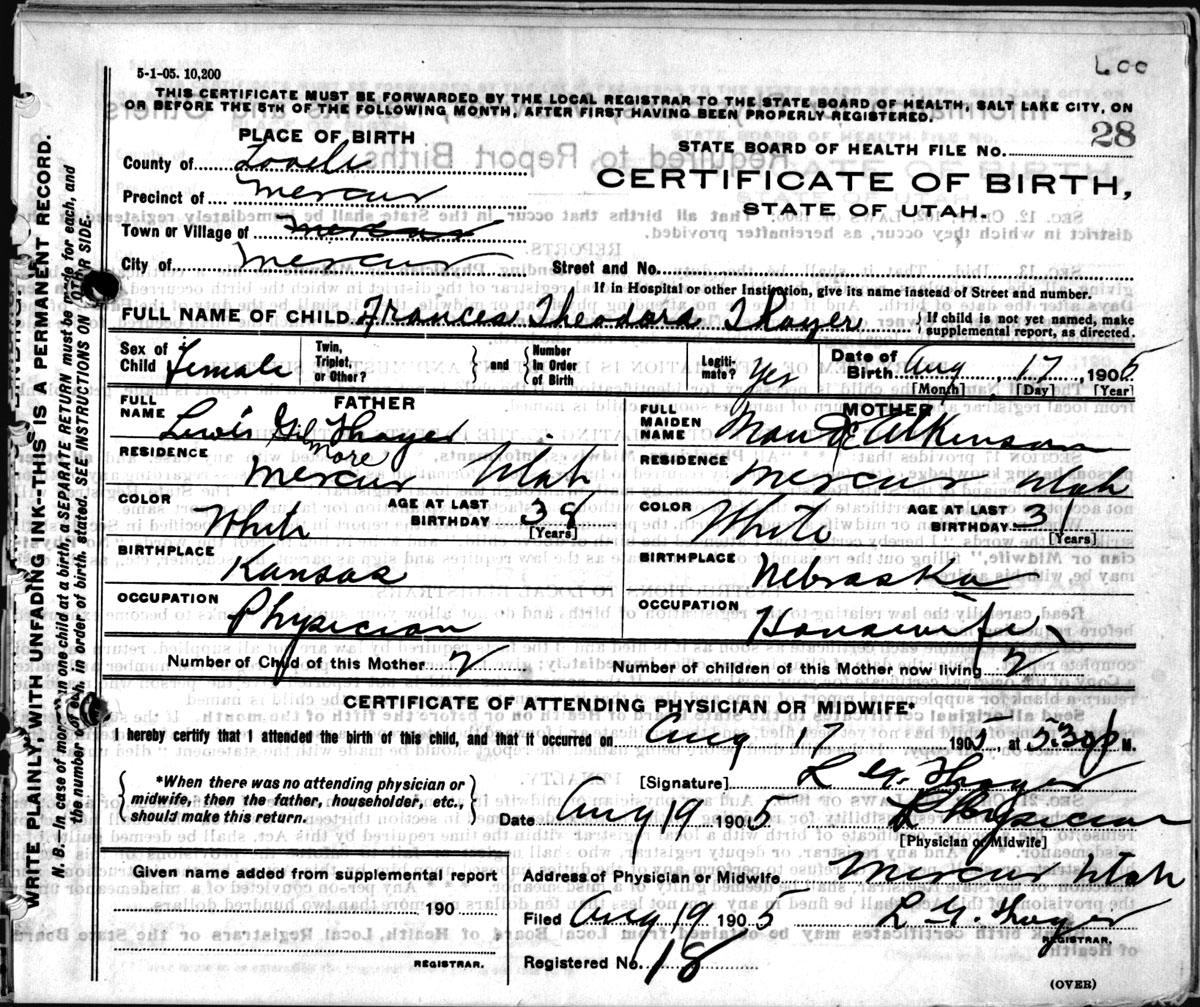 Loo
5-1-05. 10,200
THIS CERTIFICATE MUST BE FORWARDED BY THE LOCAL REGISTRAR TO THE STATE BOARD OF HEALTH, SALT LAKE CITY, ON
OR BEFORE THE 5TH OF THE FOLLOWING MONTH, AFTER FIRST HAVING BEEN PROPERLY REGISTERED.
PLACE OF BIRTH
STATE BOARD OF HEALTH FILE NO. 28
County of Tooele
CERTIFICATE OF BIRTH,
STATE OF UTAH.
Precinct of Mercur
Town or Village of Mercur
City of Mercur
Street and No.
If in Hospital or other Institution, give its name instead of Street and number.
FULL NAME OF CHILD Frances Theodora Thayer { If child is not yet named, make
supplemental report, as directed.
Sex of Child Female
Twin, Triplet, or Other? } and { Number In Order of Birth
Legiti-mate? Yes
Date of Birth Aug 17, 1905
[Month] [Day] [Year]
FATHER
FULL NAME Lewis Gilmore Thayer
RESIDENCE Mercur Utah
COLOR White AGE AT LAST BIRTHDAY 39 [Years]
BIRTHPLACE Kansas
OCCUPATION Physician
MOTHER
FULL MAIDEN NAME Maude Atkinson
RESIDENCE Mercur Utah
COLOR White AGE AT LAST BIRTHDAY 31 [Years]
BIRTHPLACE Nebraska
OCCUPATION Housewife
Number of Child of this Mother 2 Number of children of this Mother now living 2
CERTIFICATE OF ATTENDING PHYSICIAN OR MIDWIFE*
I hereby certify that I attended the birth of this child, and that it occurred on Aug 17 1905, at 5:30 P M.
{ *When there was no attending physician or
midwife, then the father, householder, etc.,
should make this return. }
[Signature] L G. Thayer
Date Aug 19 1905 Physician
[Physician or Midwife]
Given name added from supplemental report
190
REGISTRAR.
Address of Physician or Midwife Mercur Utah
Filed Aug 19 1905 L G. Thayer
REGISTRAR.
Registered No. 18
(OVER)
WRITE PLAINLY, WITH UNFADING INK--THIS IS A PERMANENT RECORD.
N. B.—In case of more than one child at a birth, a SEPARATE RETURN must be made for each, and
the number of each, in order of birth, stated. SEE INSTRUCTIONS ON OTHER SIDE.